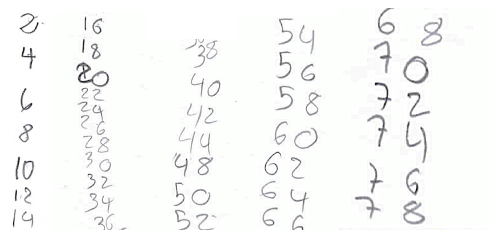 2
4
6
8
10
12
14
16
18
20
22
24
26
28
30
32
34
36
38
40
42
44
48
50
52
54
56
58
60
62
64
66
68
70
72
74
76
78